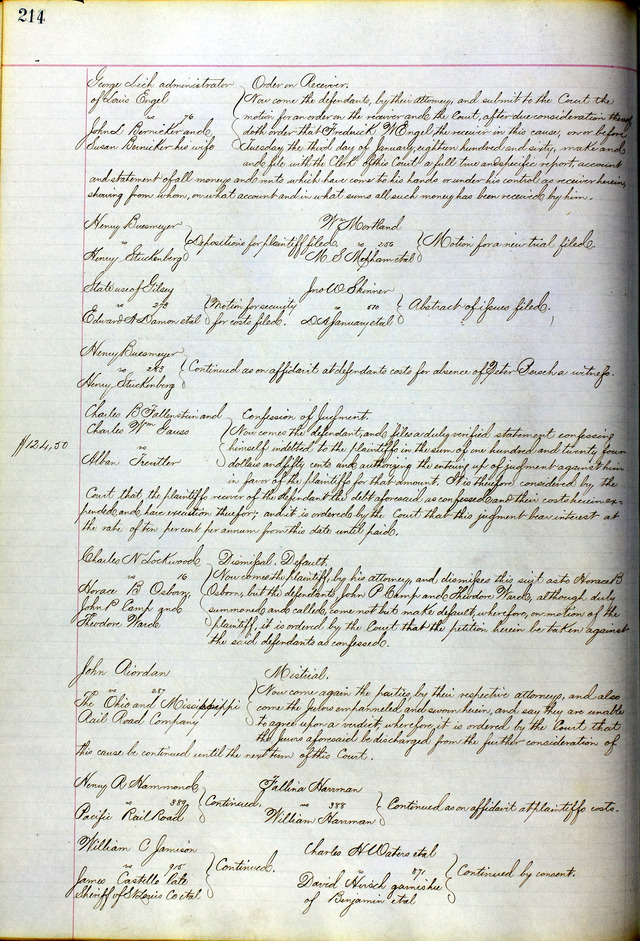 214
George Lich administrator Order on Receiver.
of Louis Engel Now come the defendants, by their attorney, and submit to the Court the
vs 76 motion for an order on the receiver and the Court, after due consideration thereof
John L Bernicker and doth order that Frederick W Engel the receiver in this cause, on or before
Susan Bernicker his wife Tuesday, the third day of January, eighteen hundred and sixty, make and
and file with the Clerk of this Court a full true and specific report, account
and statement of all moneys and rents which have come to his hands or under his control as receiver herein,
showing from whom, on what account and in what sums all such money has been received by him.
Henry Buesmeyer Wm Mortland
vs Depositions for plaintiff filed. vs 256 Motion for a new trial filed
Henry Stuckenberg M. S. Mepham etal
State use of Gilsey Jno W Skinner
vs 273 Motion for security vs 810 Abstract of issues filed.
Edward A Damon etal for costs filed. D A January etal
Henry Buesmeyer
vs 263 Continued as on affidavit at defendants costs for absence of Peter a witness.
Henry Stuckenberg
Charles B Fallenstein and Confession of Judgment
Charles Wm Gauss Now comes the defendant, and files a duly verified statement confessing
$124,50 vs himself indebted to the plaintiffs in the sum of one hundred and twenty four
Alban Treutler dollars and fifty cents and authorizing the entering up of judgment against him
in favor of the plaintiffs for that amount. It is therefore considered by the
Court that, the plaintiffs recover of the defendant the debt aforesaid as confessed and their costs herein ex-
pended, and have execution therefor; and it is ordered by the Court that this judgment bear interest at
the rate of ten percent per annum from this date until paid.
Charles N Lockwood Dismissal. Default.
vs 16 Now comes the plaintiff, by his attorney, and dismisses this suit as to Horace B
Horace B Osborn, Osborn, but the defendants, John P Camp and Theodore Warde, although duly
John P Camp and summoned and called, come not but make default, wherefore, on motion of the
Theodore Warde plaintiff, it is ordered by the Court that the petition herein be taken against
the said defendants as confessed.
John Riordan Mistrial.
vs 287 Now come again the parties, by their respective attorneys, and also
The Ohio and Mississippi come the jurors empannelled and sworn herein, and say they are unable
Rail Road Company to agree upon a verdict, wherefore, it is ordered by the Court that
the jurors aforesaid be discharged from the further consideration of
this cause be continued until the next term of this Court.
Henry R Hammond Fallina Harrman
vs 389 Continued. vs 388 Continued as on affidavit at plaintiffs costs.
Pacific Rail Road William Harrman
William C Jamison Charles H Waters etal
vs 915 Continued. vs 871 Continued by consent.
James Castello late David Hirsch garnishee
Sheriff of St Louis Co etal of Benjamin etal